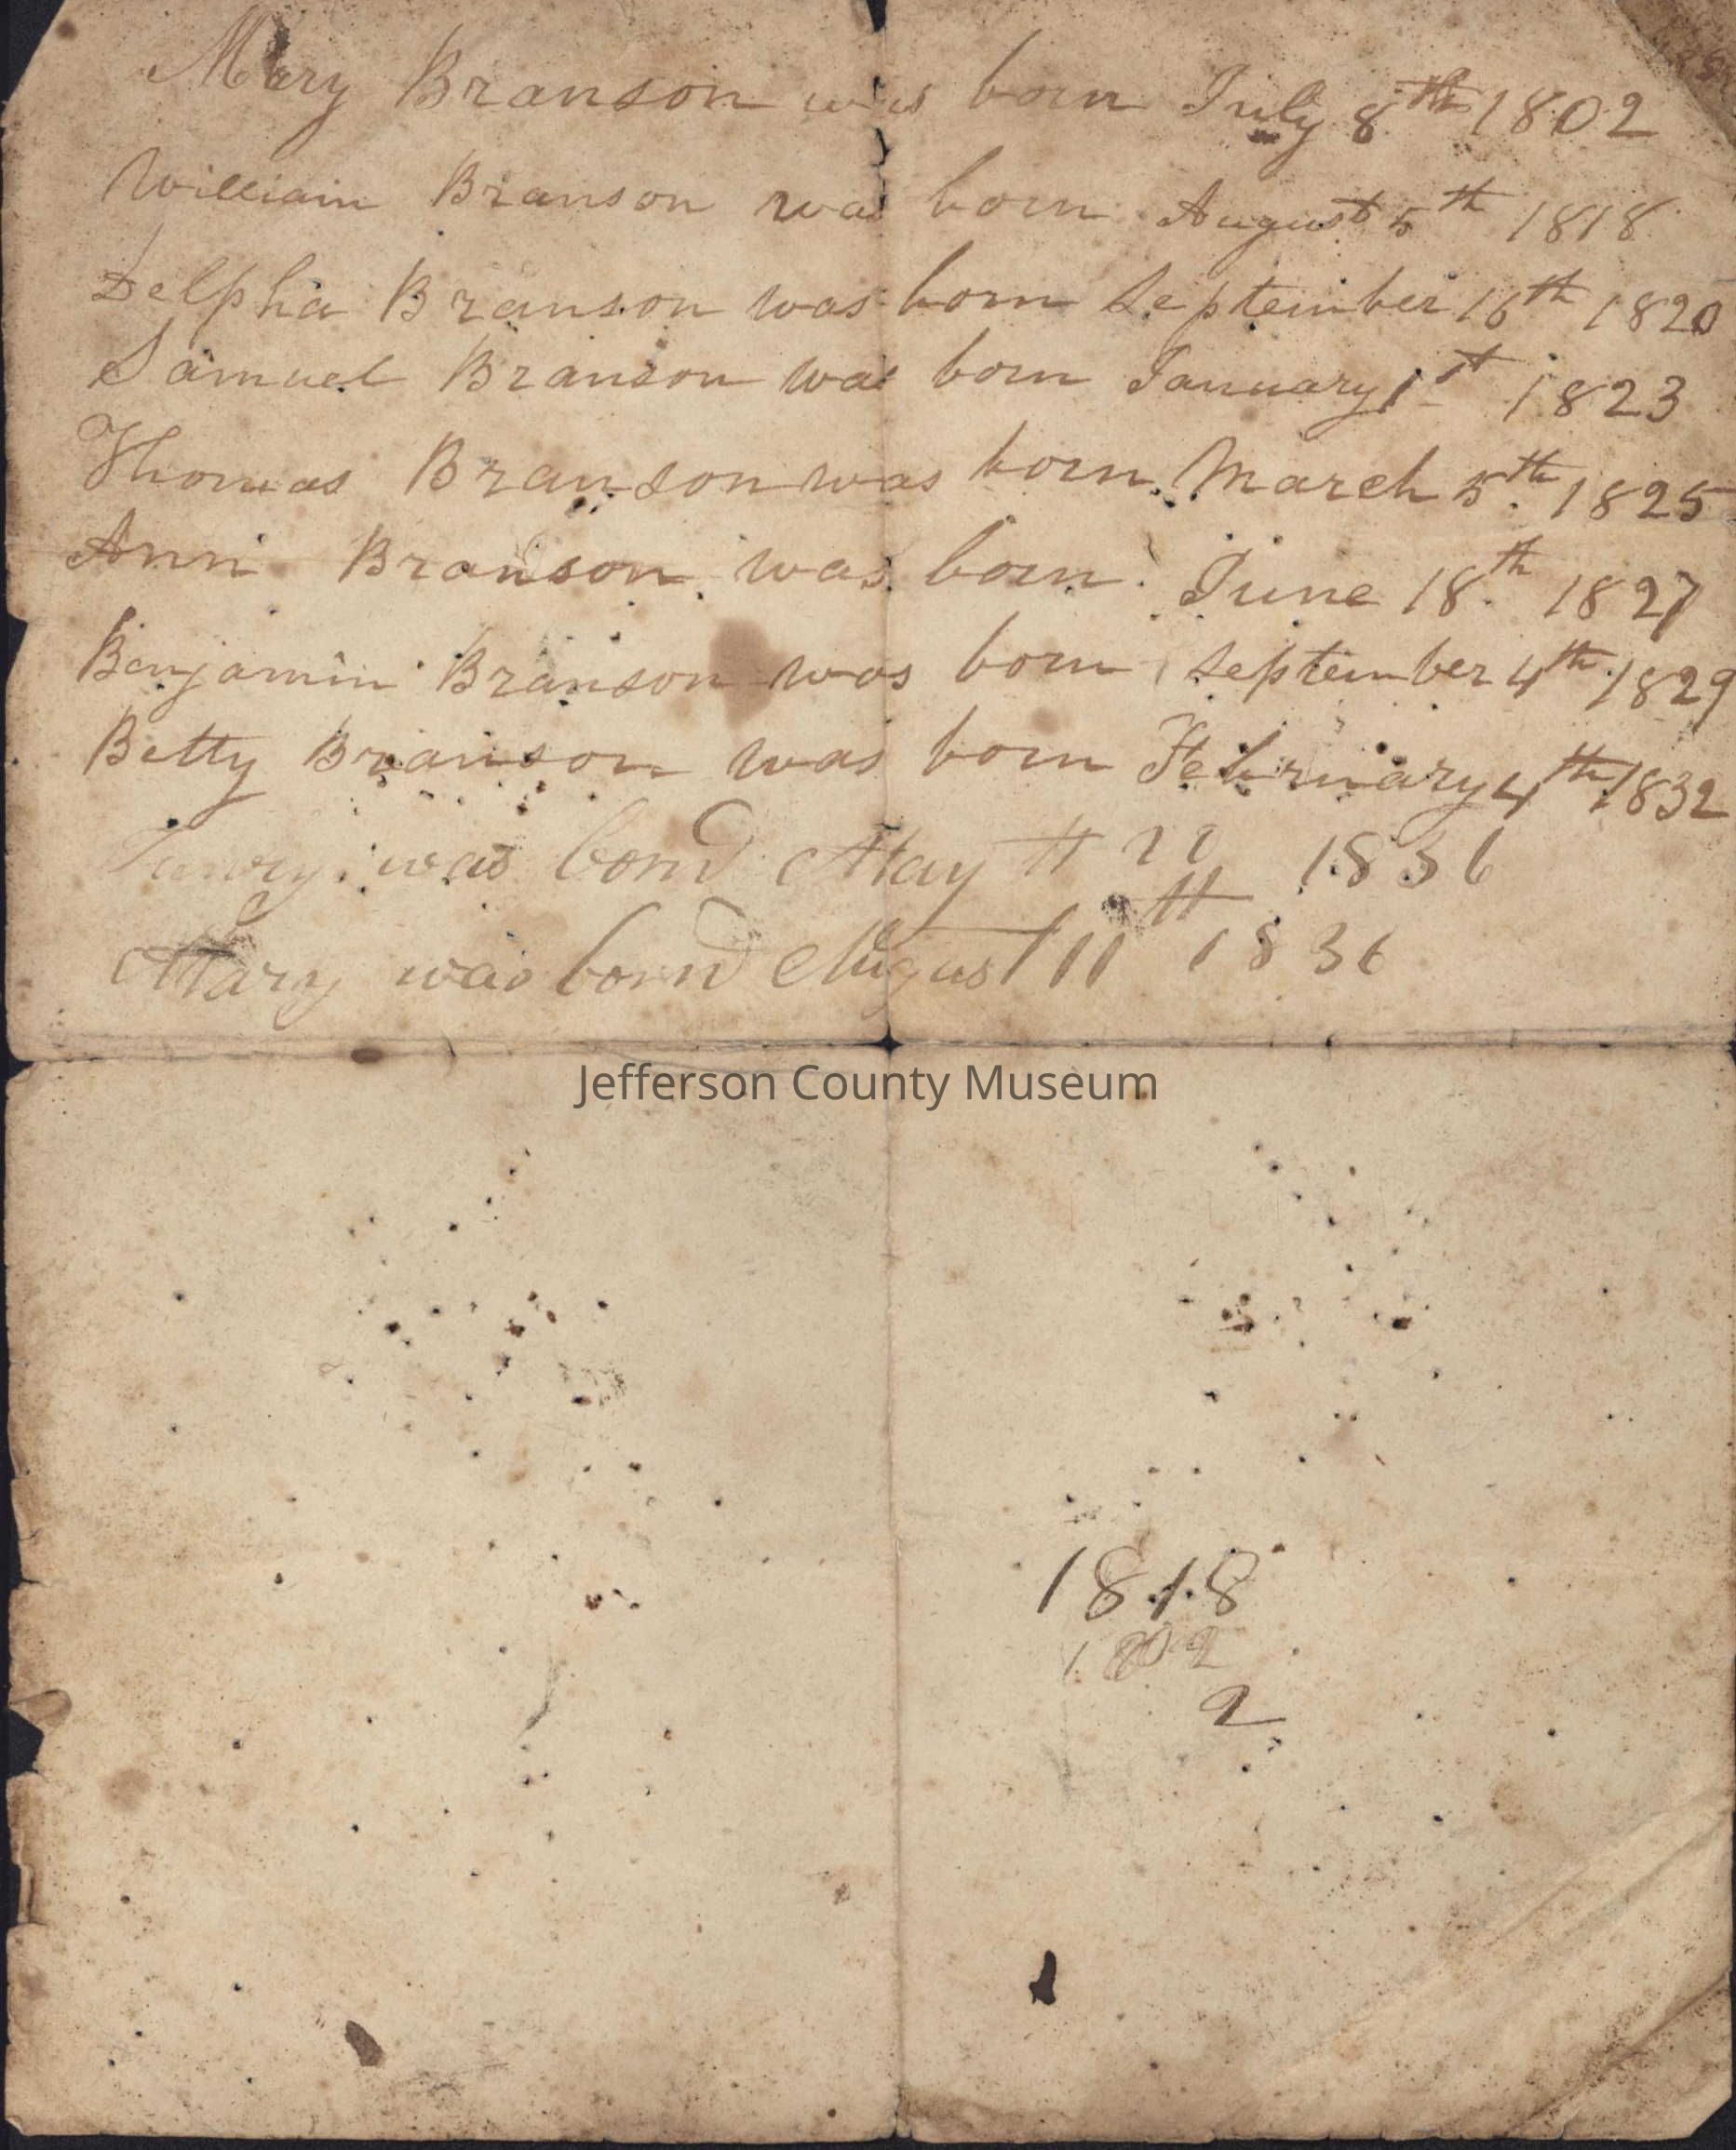 Mary Branson was born July 8th 1802
William Branson was born August 5th 1818
Delpha Branson was born September 16th 1820
Samuel Branson was born January 1st 1823
Thomas Branson was born March 5th 1825
Ann Branson was born June 18th 1827
Benjamin Branson was born September 4th 1829
Betty Branson was born February 4th 1832
was bornd May 1836
Mary was bornd August 11 1836
Jefferson County Museum
1818
1802
2